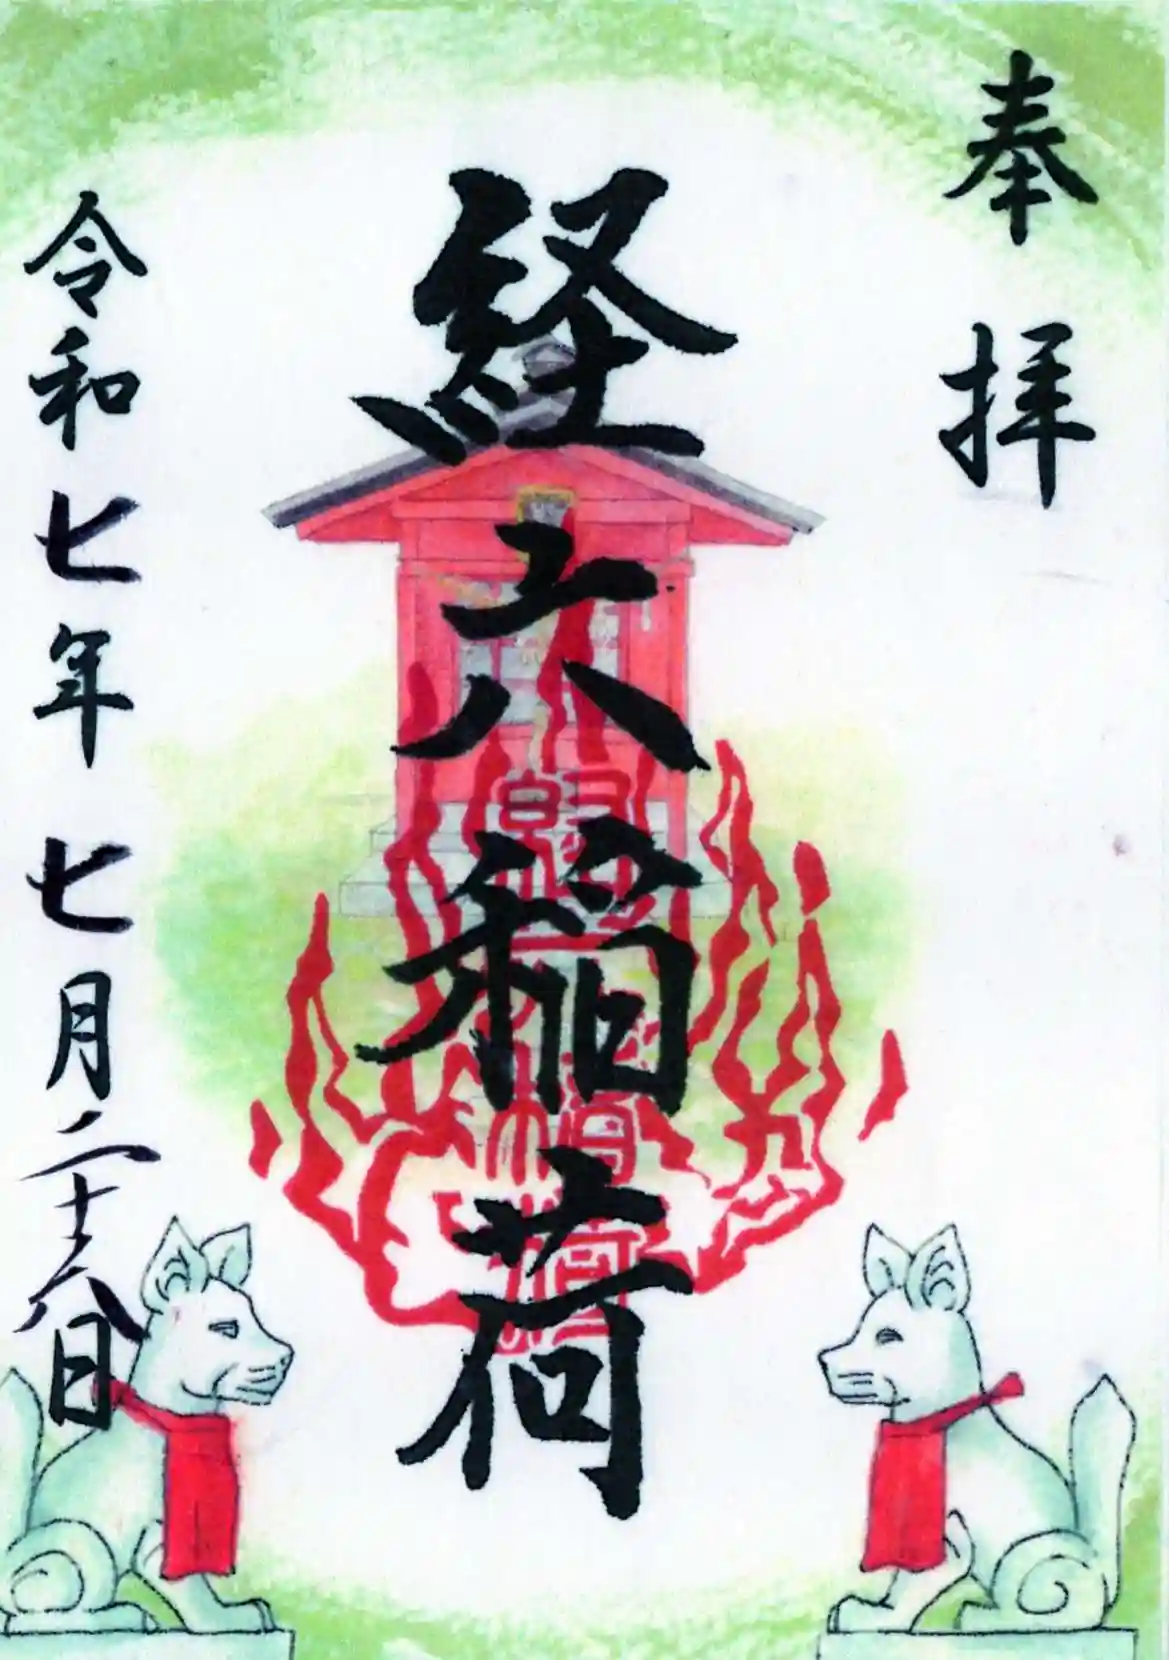 奉拝
経六稲荷
令和七年七月二十六日